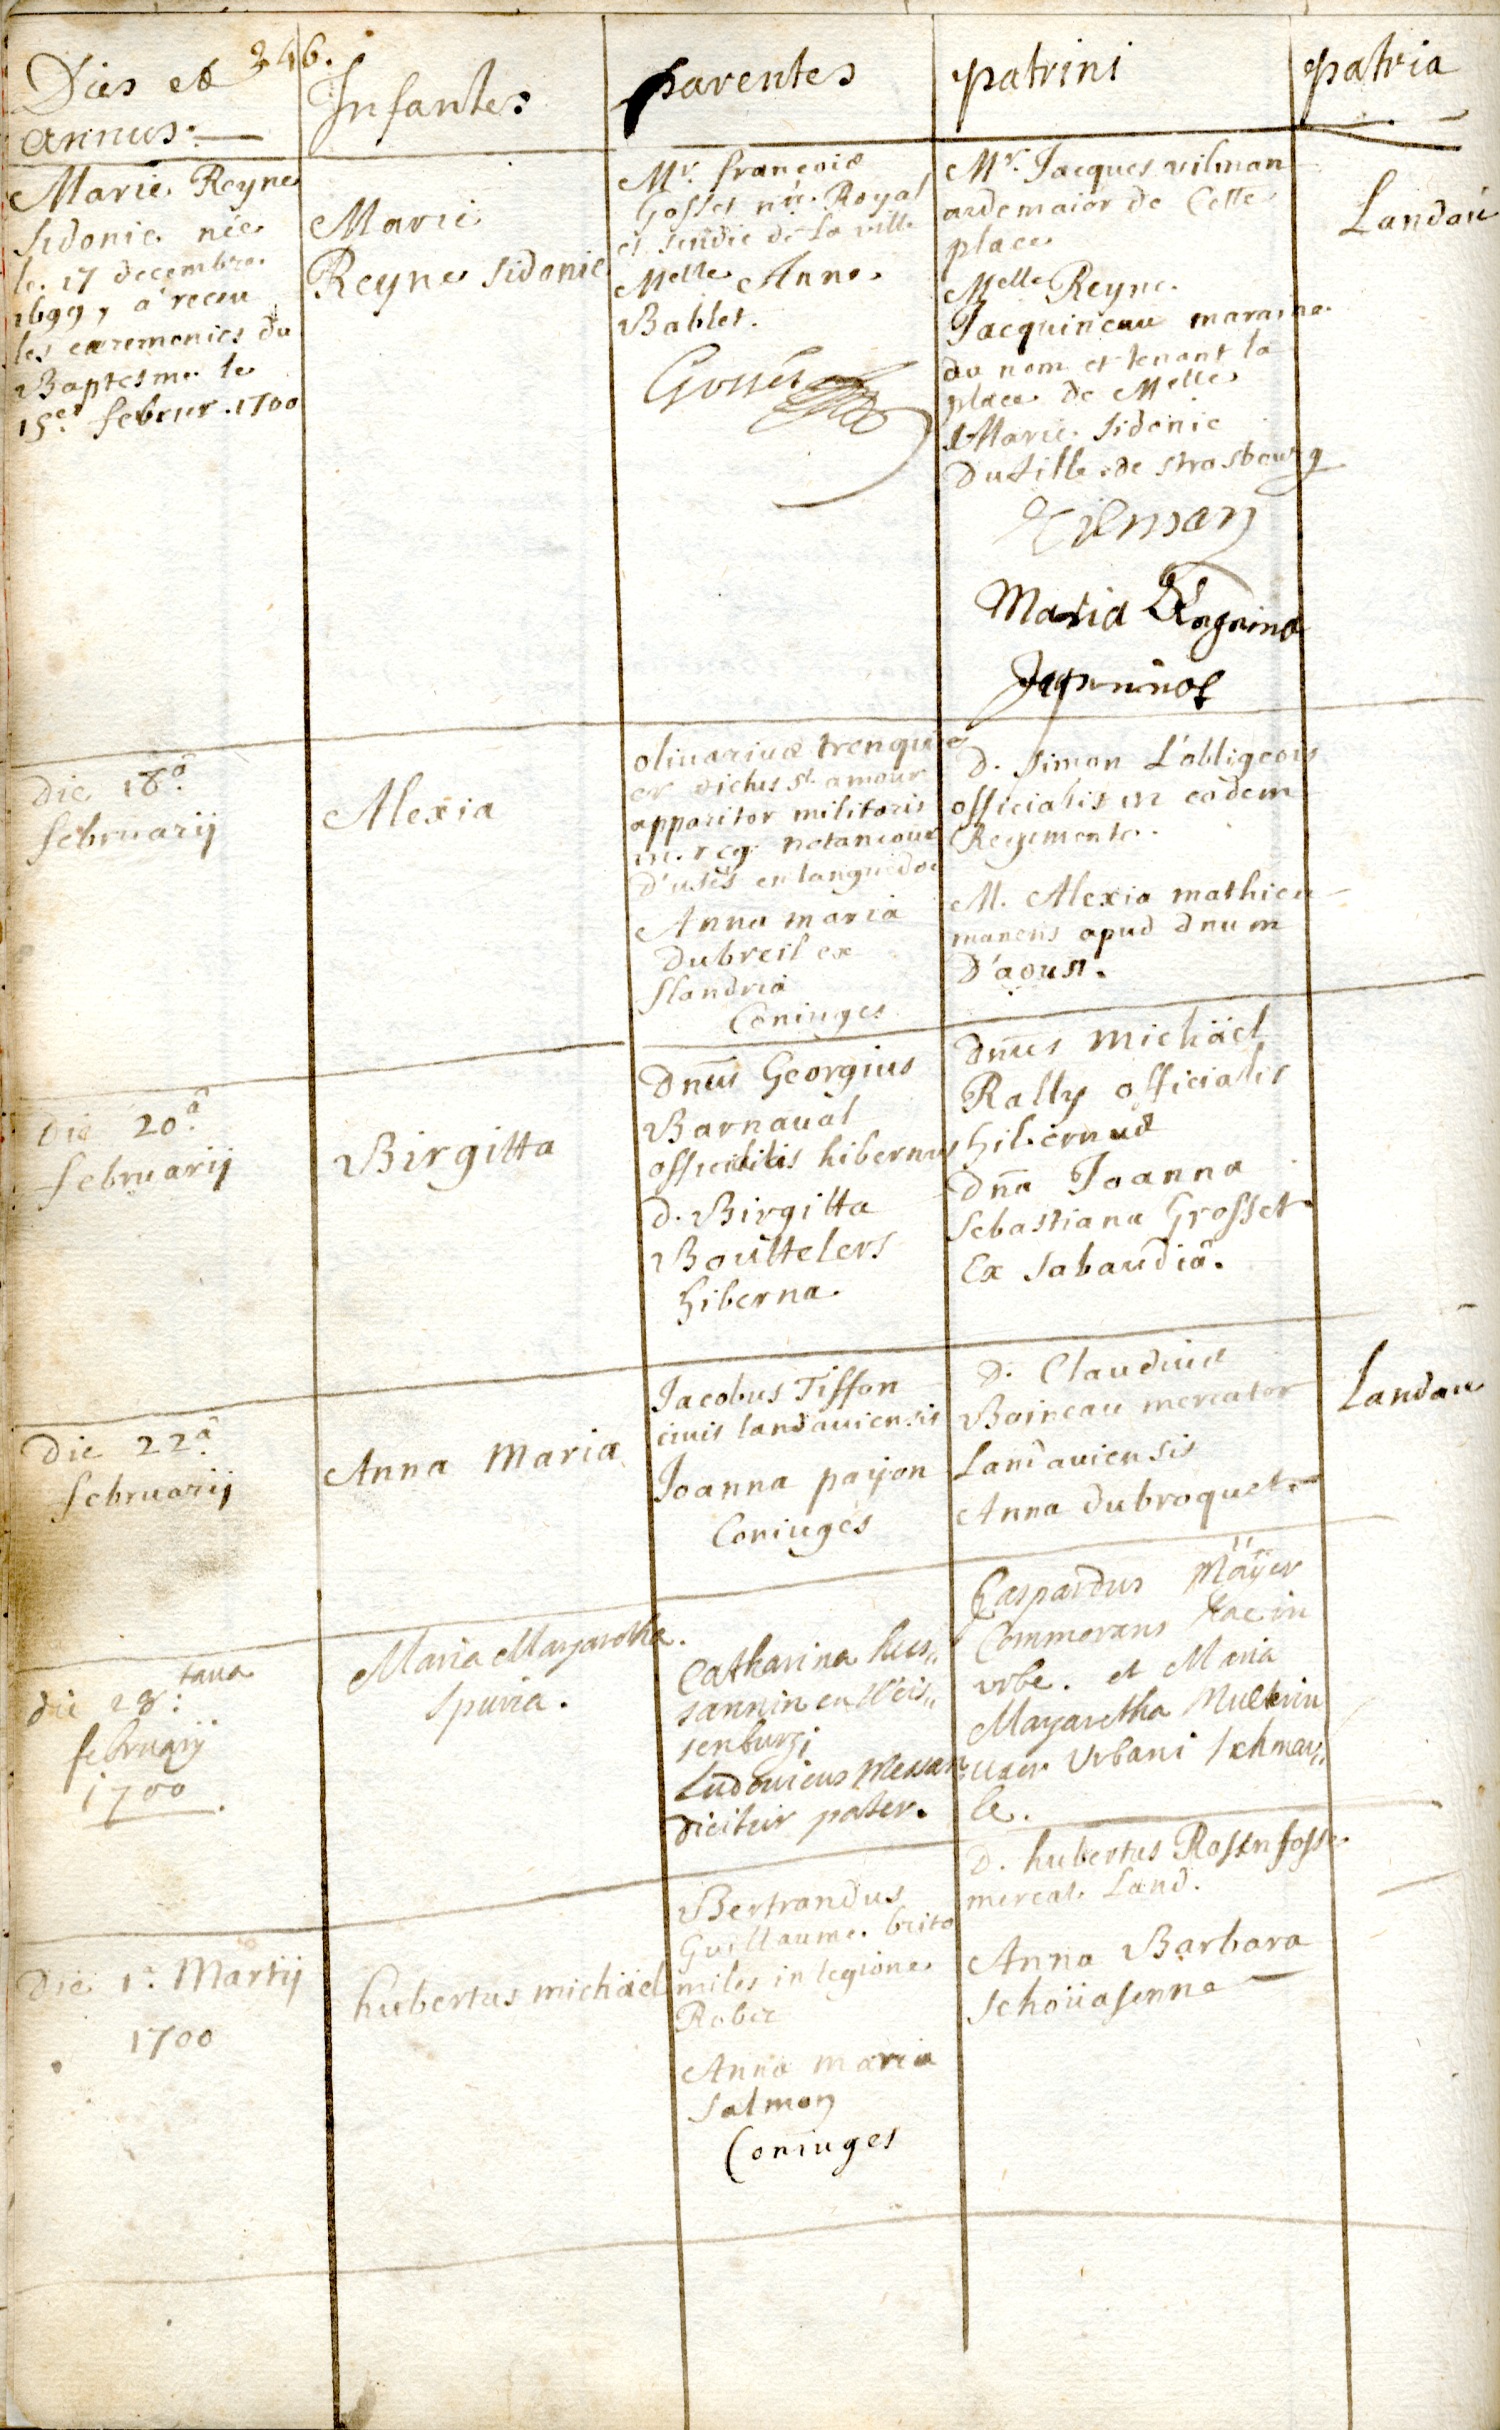 246.
Dies et
annus.
Infantes
parentes
patrini
patria
Marie Reyne
Sidonie née
le 17 decembre
1699, a receu
les ceremonies du
Baptesme le
15e. febvrier. 1700
Marie
Reyne Sidonie
Mr. françois
Gosset Royal
et sindic de La ville
Melle Anne
Bablet.
Gosset
Mr. Jacques vilman
aidemaior de Cette
place
Melle Reyne
Jacquineau maraine
du nom et tenant la
place de Melle
Marie Sidonie
Dutille de strasbourg
Vilman
Maria Regnina
Landau
Die 18â.
februarij
Alexia
olivarius trenqui
er dictus St. amour
apparitor militaris
in reg.
D'usès en languedoc
Anna maria
Dubreil ex
flandria
Coniuges
D. Simon L'obligeois
officialis in eodem
Regimento.
M. Alexia mathieu
manens apud dnum
D'aoust.
Die 20â.
februarij
Birgitta
Dnus Georgius
Barnaual
officialis hibernus
D. Birgitta
Bouttelers
hiberna.
Dnus Michäel
Rally officialis
hibernus
Dna Joanna
Sebastiana Grosset
Ex Sabaudiâ.
Die 22â.
februarij
Anna Maria
Jacobus Tiffon
civis landaviensis
Joanna payon
Coniuges
D. Claudius
Boineau mercator
Landaviensis
Anna dubroquet.
Landau
die 28:tava
februarij
1700
Maria Margaretha.
Spuria.
Catharina hus„
sannin en Weis„
senburg
Ludovicus Messan
dicitur pater.
Caspardus Mäÿer
Commorans hac in
urbe. et Maria
Margaretha Mullerin
uxor Urbani Schmar„
le.
Die 1â. Martij
1700
hubertus michäel
Bertrandus
Guillaume. brito
miles in legione
Robec
Anna maria
Salmon
Coniuges
D. hubertus Rosenfosse
mercat. Land.
Anna Barbara
Schoüasenne